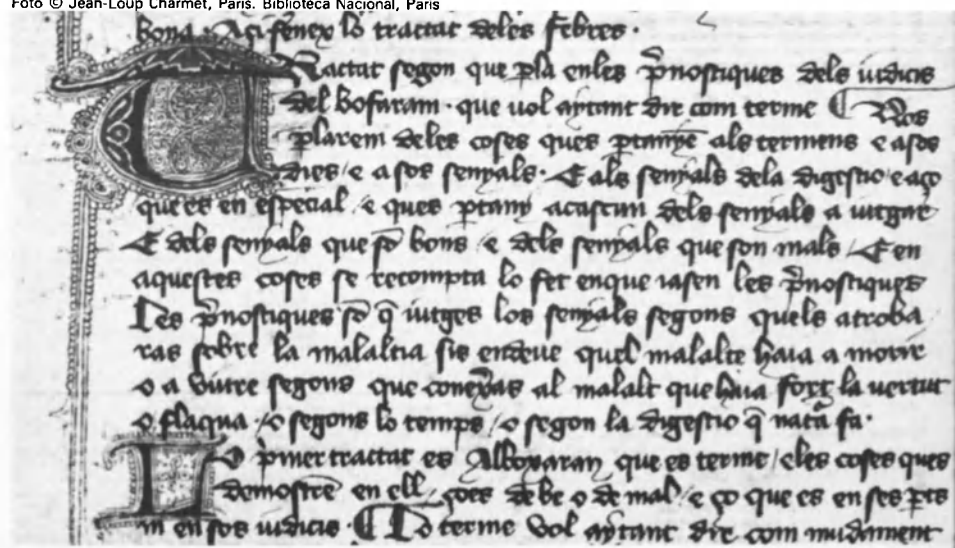 Foto © Jean-Loup Charmet, Paris. Biblioteca Nacional, Paris
bona. Aci feneix lo tractat deles febres.
Tractat segon que pla enles p̄nostiques dels iudicis
del bofaram. que uol aytant dir com terme ¶ Nos
plarem deles coses ques ptanyē als termens e a sos
dies / e a sos senyals. E als senyals dela digestio / e aço
que es en especial / e ques ptany acascun dels senyals a iutgar
E dels senyals que sō bons / e dels senyals que son mals / E en
aquestes coses se recompta lo fet enque iasen les p̄nostiques
Les p̄nostiques sō q̄ iutges los senyals segons quels atroba
ras sobre la malaltia sis endeue quel malalte haia a morir
o a viure segons que conexeras al malalt que haia fort la vertut
o flaqua / o segons lo temps / o segon la digestio q̄ natā fa.
Lo p̄mer tractat es Alboxaran que es terme / e les coses ques
demostrē en ell / çoes de be o de mal / e ço que es en ses pts
ni en sos iudicis. ¶ Lo terme vol aytant dir com mudament